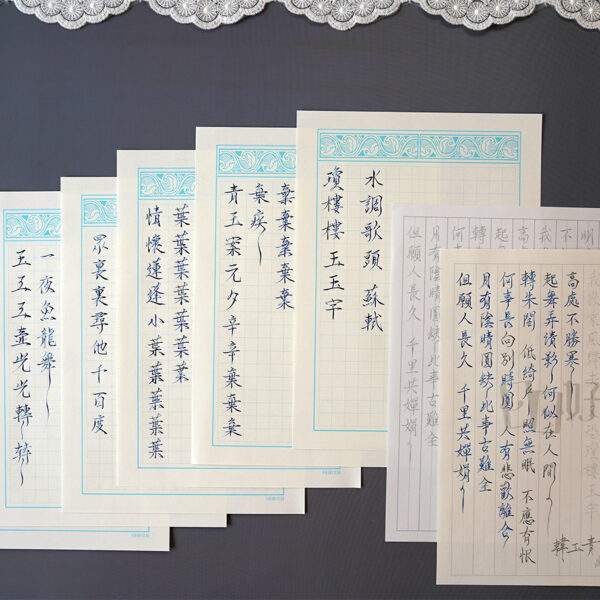 高處不勝寒
起舞弄清影 何似在人間
轉朱閣 低綺戶 照無眠 不應有恨
何事長向別時圓 人有悲歡離合
月有陰晴圓缺 此事古難全
但願人長久 千里共嬋娟
韓玉青
月有陰晴圓缺 此事古難全
但願人長久 千里共嬋娟
水調歌頭 蘇軾
瓊樓樓玉玉宇
棄棄棄棄棄
棄疾
青玉案元夕辛辛棄棄棄
葉葉葉葉葉葉葉
情懷蓮蓬小葉葉葉葉葉
眾裏裏尋他千百度
一夜魚龍舞
玉玉玉壺光光轉轉